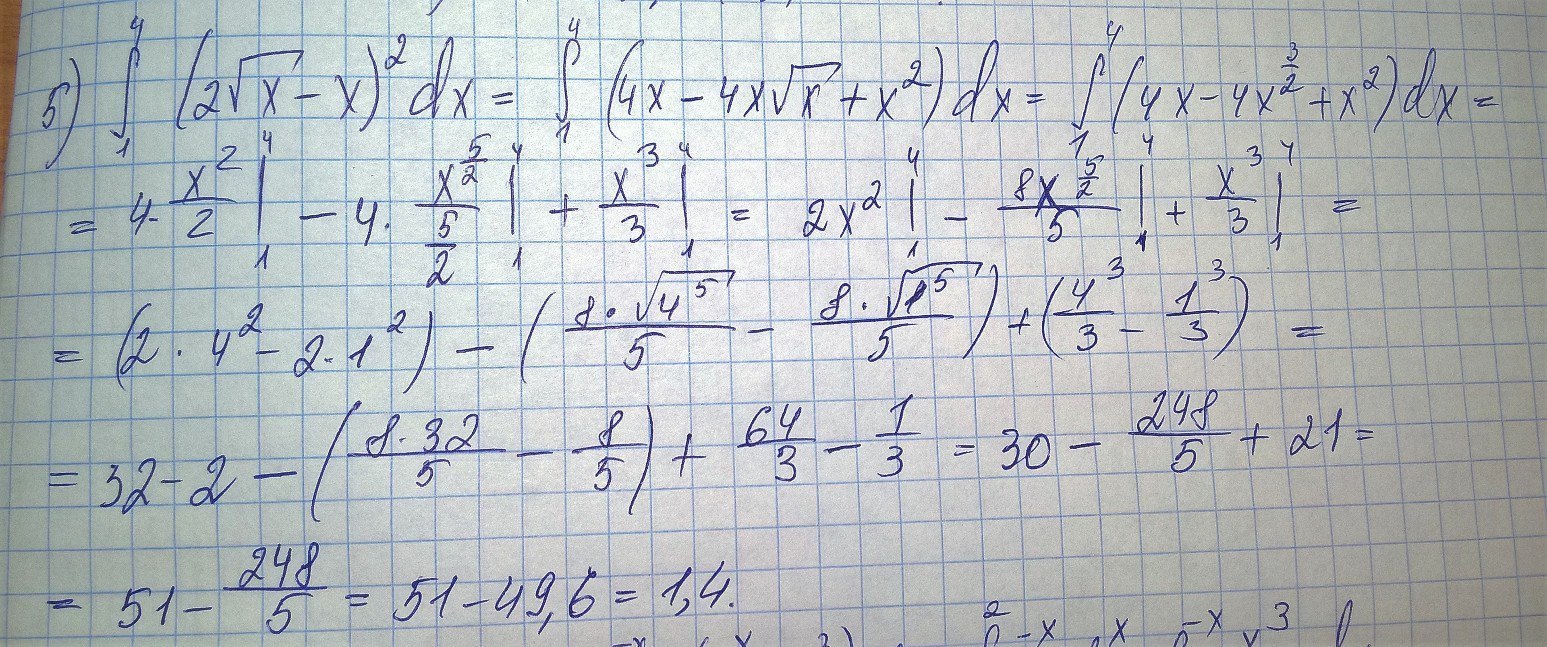 5) ∫₁⁴ (2√x − x)² dx = ∫₁⁴ (4x − 4x√x + x²) dx = ∫₁⁴ (4x − 4x^(3/2) + x²) dx =
= 4 · x²/2 |₁⁴ − 4 · x^(5/2)/(5/2) |₁⁴ + x³/3 |₁⁴ = 2x² |₁⁴ − 8x^(5/2)/5 |₁⁴ + x³/3 |₁⁴ =
= (2 · 4² − 2 · 1²) − (8 · √4⁵/5 − 8 · √1⁵/5) + (4³/3 − 1³/3) =
= 32 − 2 − (8 · 32/5 − 8/5) + 64/3 − 1/3 = 30 − 248/5 + 21 =
= 51 − 248/5 = 51 − 49,6 = 1,4.